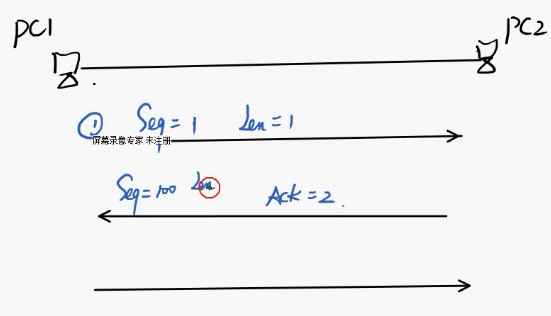 PC1 PC2
① Seq=1 Len=1
屏幕录像专家 未注册
Seq=100 Len Ack=2.